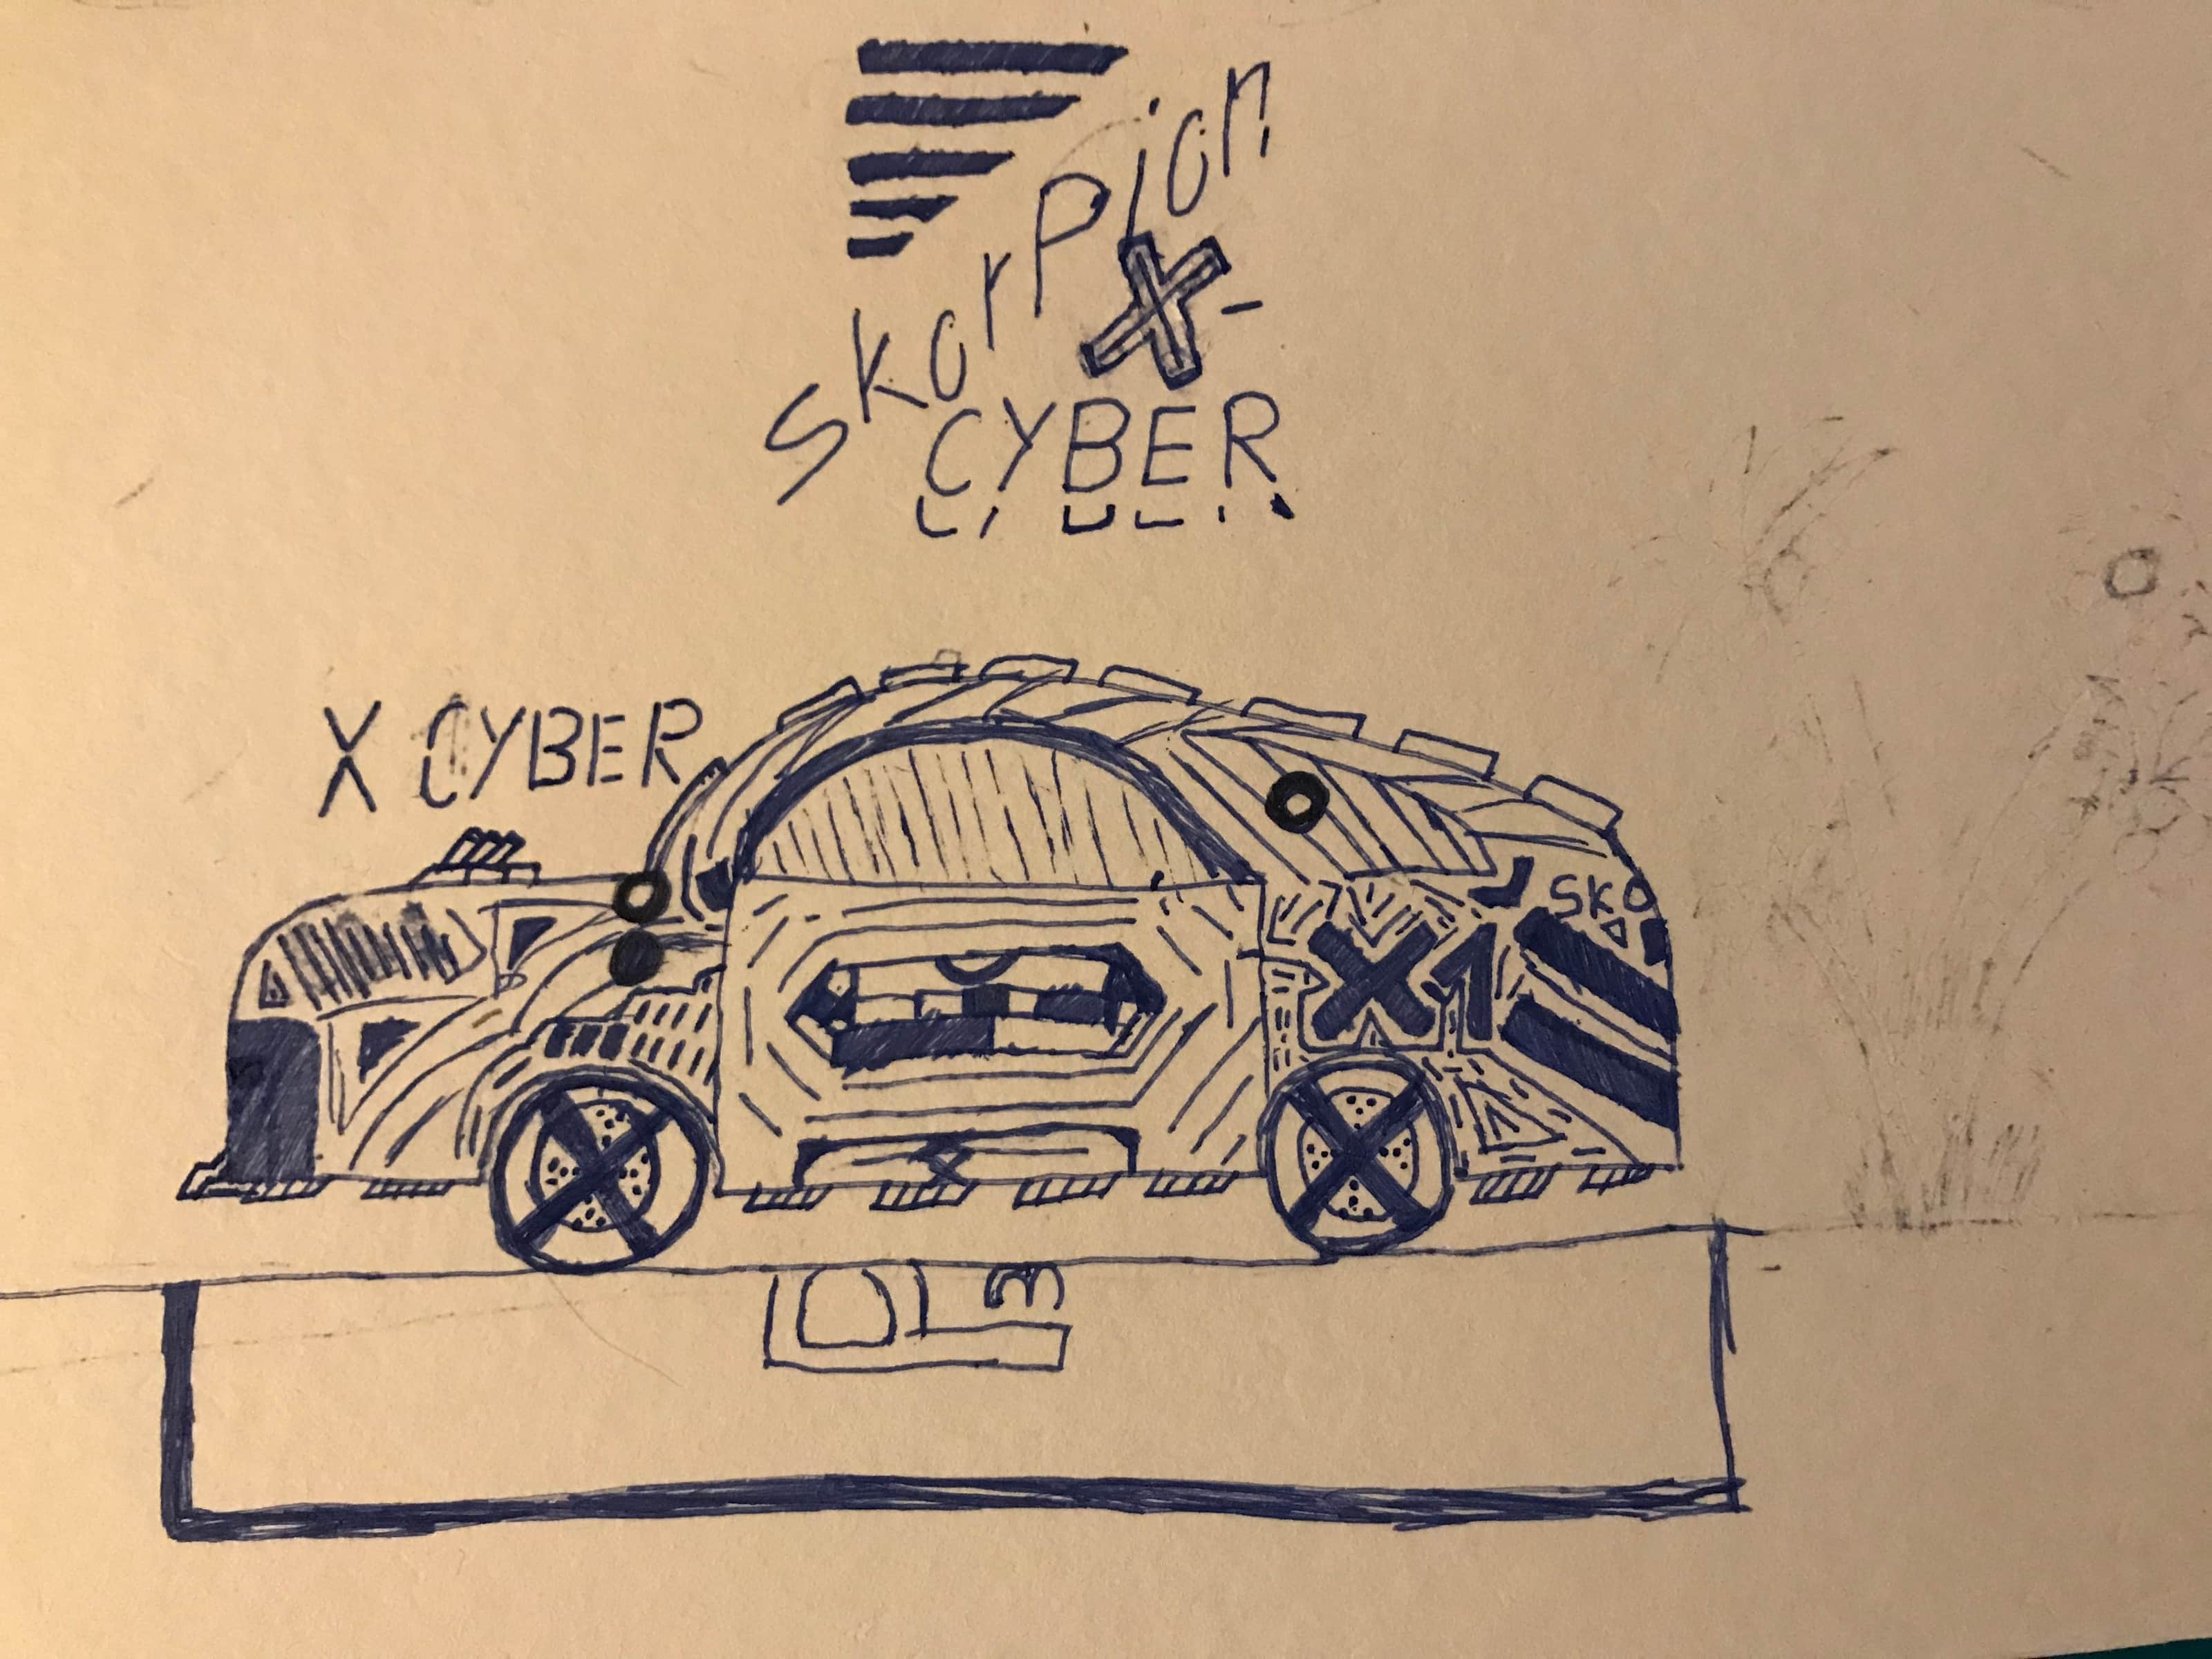 SkorPion
X-
CYBER
X CYBER
SKO
X1